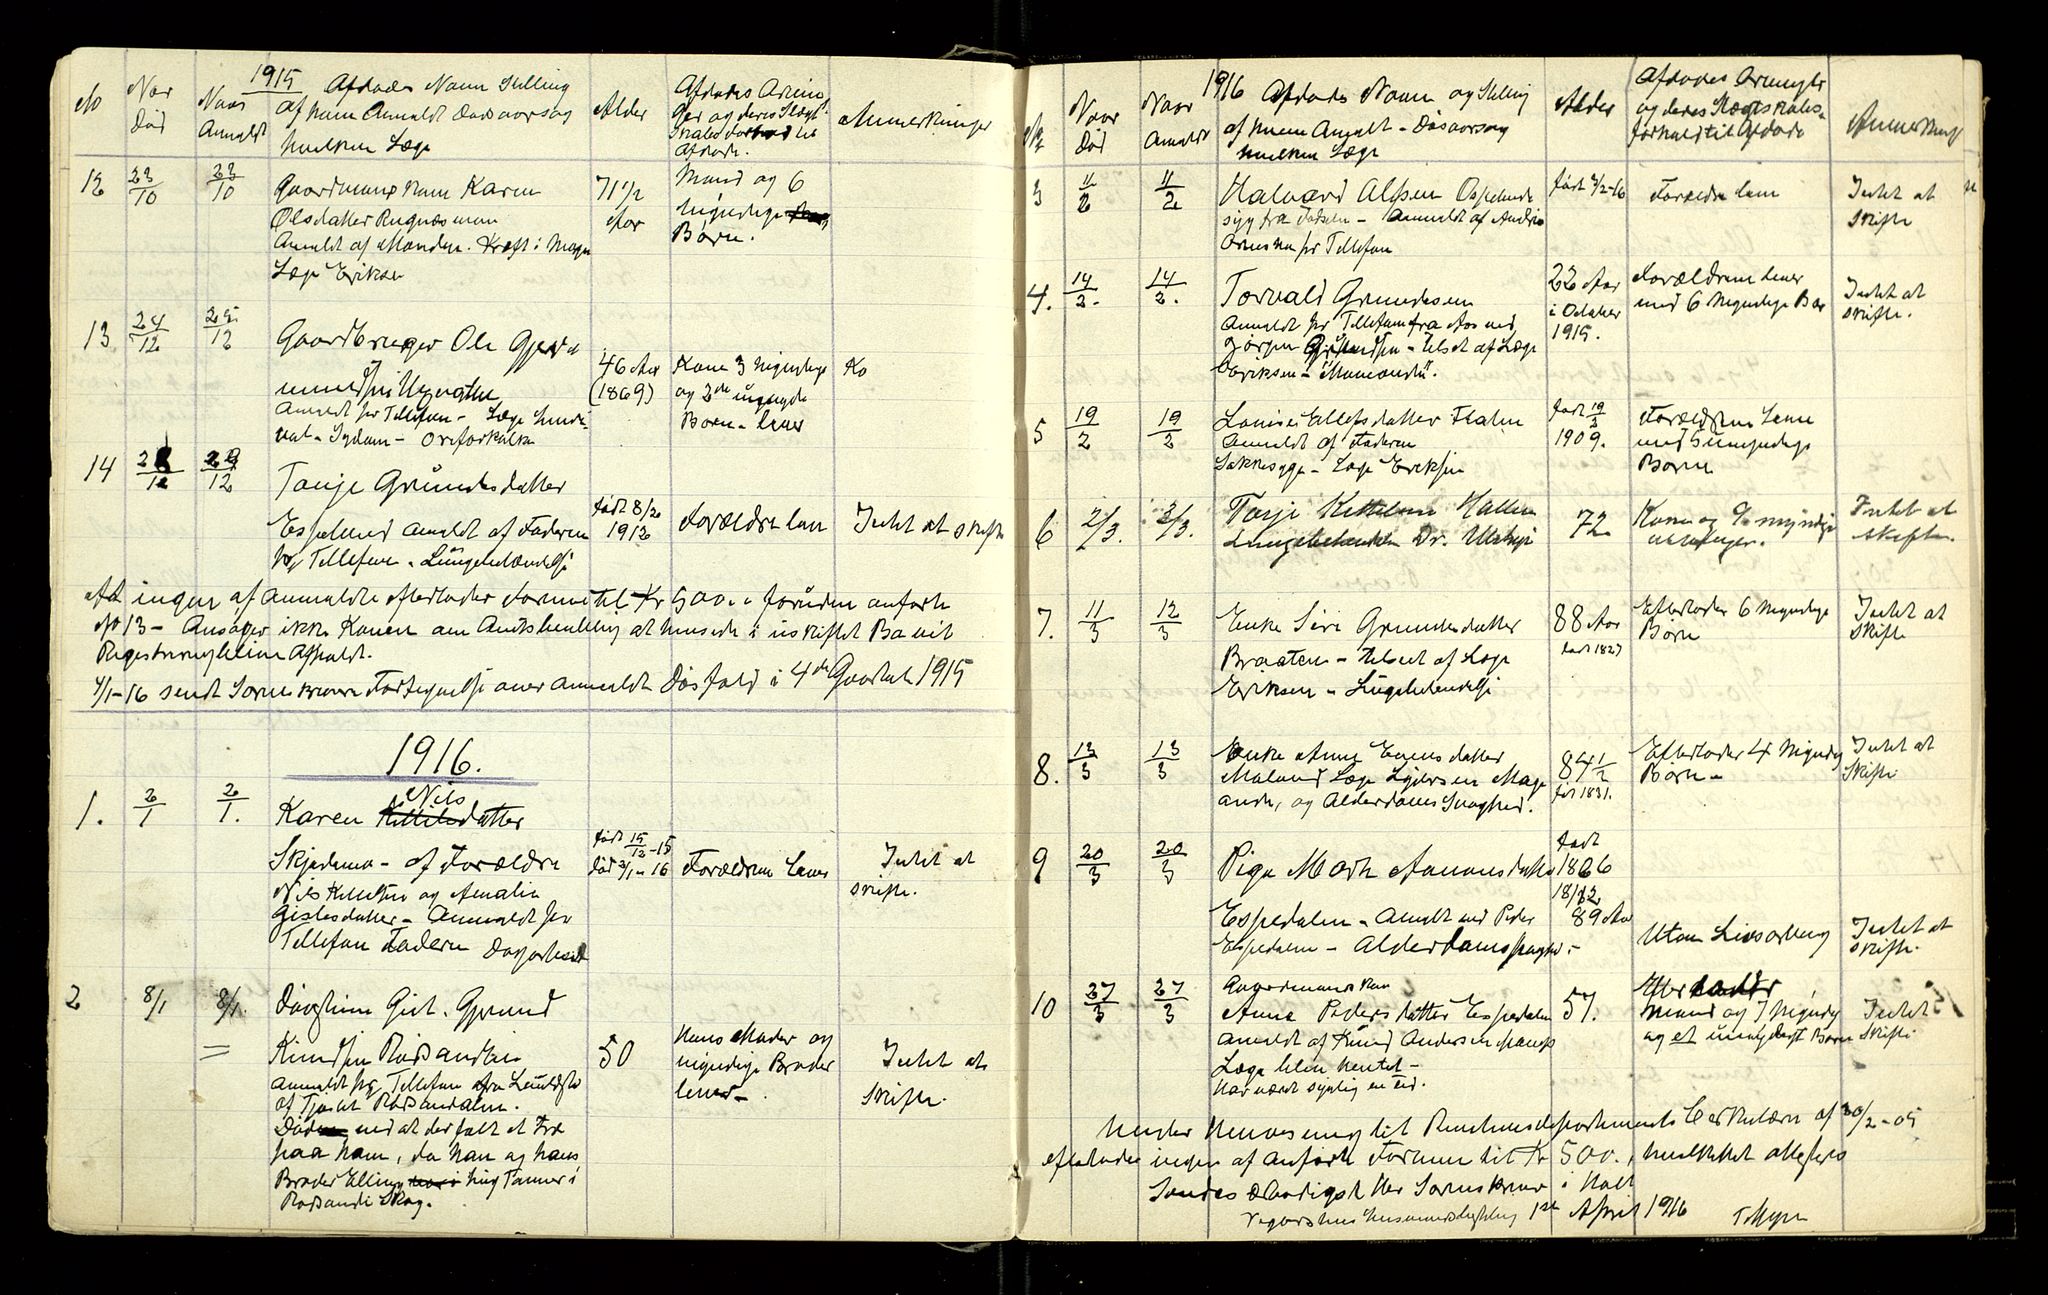 1915
No
Nar
Død
Naar
Anmeldt
Afdødes Navn Stilling
af hvem Anmeldt Dødsaarsag
hvilken Læge
Alder
Afdødes Arvin
ger og deres Slægt
skabs forhold til
Afdøde.
Anmerkninger
12 23/10 23/10
Gaardmans Kone Karen
Olsdatter
Anmeldt af Manden. Kræft i Maven
Læge Eriksen
71 1/2
Aar
Mand og 6
myndige
Børn.
13 24/12 25/12
Gaardbruger Ole Gjer
mundsen
Anmeldt pr Tellefon - Læge
Sygdom - Areforkalk
46 Aar
(1869)
Kone 3 myndige
og 2de umyndige
Børn - lever
Ko
14 28/12 29/12
Tonje Grundesdatter
Espelund Anmeldt af Faderen
pr Tellefon - Lungebetændelse
født 8/2
1912
Forældre lever
Intet at skifte
At ingen af Anmeldte efterlader Formue til Kr 500. - foruden anførte
No 13 - Ansøger ikke Konen om Amtsbevilling at hensidde i uskiftet Bo vil
4/1-16 sendt Sorenskriveren Fortegnelse over Anmeldte Dødsfald i 4de Qvartal 1915
1916.
1. 2/1 2/1.
Nils
Karen Kittilsdatter
af Forældre
Nils Kittilsen og Amalie
Gislesdatter - Anmeldt pr
Tellefon Faderen
født 15/12-15
død 2/1-16
Forældrene Lever
Intet at
skifte.
2 8/1 8/1.
Gjermund
Knudsen Røssandlien
Anmeldt pr Tellefon fra
af
Døde ved at der faldt et Træ
paa ham, da han og hans
Broder Elling hug Tømmer i
Skog.
50
Hans Moder og
myndige Brødre
lever -
Intet at
skifte.
1916
No
Naar
Død
Naar
Anmeldt
Afdødes Navn og Stilling
af hvem Anmeldt - Dødsaarsag
hvilken Læge
Alder
Afdødes Arvinger
og deres Slægtskabs-
forhold til Afdøde
Anmerkning
3 11/2 11/2
Halvard Alfsen Espelund
syg fra Fødselen - Anmeldt af
pr Tellefon
født 2/2-16
Forældre lever
Intet at
skifte
4. 14/2. 14/2.
Torvald Grundesen
Anmeldt pr Tellefon fra
Jørgen - tilset af Læge
Eriksen -
22 Aar
i Oktober
1915.
Forældrene lever
med 6 Myndige Børn
Intet at
skifte.
5 19/2 19/2
Lovise Ellefsdatter
Anmeldt af Faderen
Sukkersyge - Læge Eriksen
født 19/2
1909.
Forældrene lever
med 5 umyndige
Børn
6 2/3. 2/3.
Tarje Kittelsen
Lungebetændelse Dr.
72
Kone og 9 myndige
Intet at
skifte.
7. 11/3 12/3
Enke Siri Grundesdatter
Braaten - tilset af Læge
Eriksen - Lungebetændelse
88 Aar
født 1827
Efterlader 6 Myndige
Børn
Intet at
skifte
8. 13/3 13/3
Enke Anne Evensdatter
Læge
og Alderdoms Svaghed.
84 1/2
før 1831.
Efterlader 4 Myndige
Børn -
Intet at
skifte
9 20/3 20/3
Pige Marte Aanonsdatter
Espedalen - Anmeldt ved Peder
Espedalen - Alderdomssvaghed -
født
1826
89 Aar
Uten Livsarving
Intet at
skifte.
10 27/3 27/3
Gaardmans Kone
Anne Pedersdatter Espedalen
Anmeldt af Knud Andersen
Læge blev hentet -
Har været sygelig en tid.
57.
Efterlader
Mand og 7 Myndige
og et umyndigt Barn
Intet
Skifte.
Under Henvisning til Revisionsdepartementets Cirkulære af 20/2-05
efterlader ingen af Anførte Formue til Kr 500., hvilket attesteres
Sendes Ærbødigst Her Sorenskriver i Holt
1ste April 1916